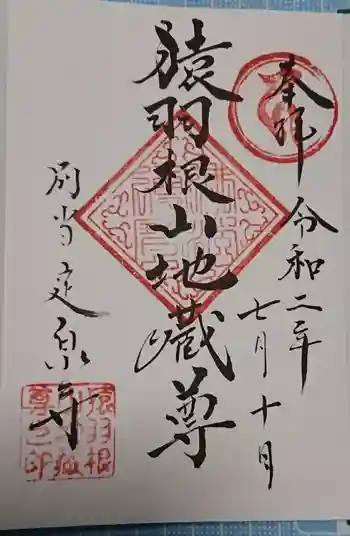 奉拝
令和二年
七月十日
猿羽根山地蔵尊
別当定泉寺
猿羽根
山地蔵
尊之印